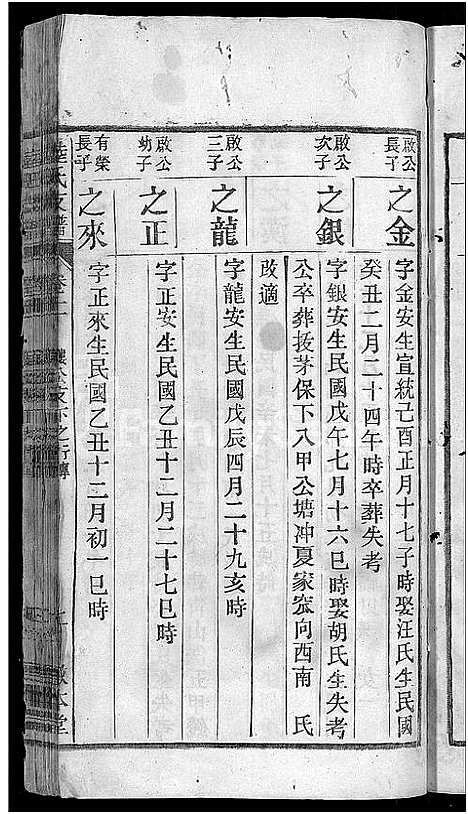 啟公長子
之金
字金安生宣統己酉正月十七子時娶汪氏生民國
癸丑二月二十四午時卒葬失考
啟公次子
之銀
字銀安生民國戊午七月十六巳時娶胡氏生失考
公卒葬拔茅保下八甲公塘冲夏家窊向西南 氏
改適
啟公三子
之龍
字龍安生民國戊辰四月二十九亥時
啟公幼子
之正
字正安生民國乙丑十二月二十七巳時
有榮長子
之來
字正來生民國乙丑十二月初一巳時
氏支譜 卷二
本堂